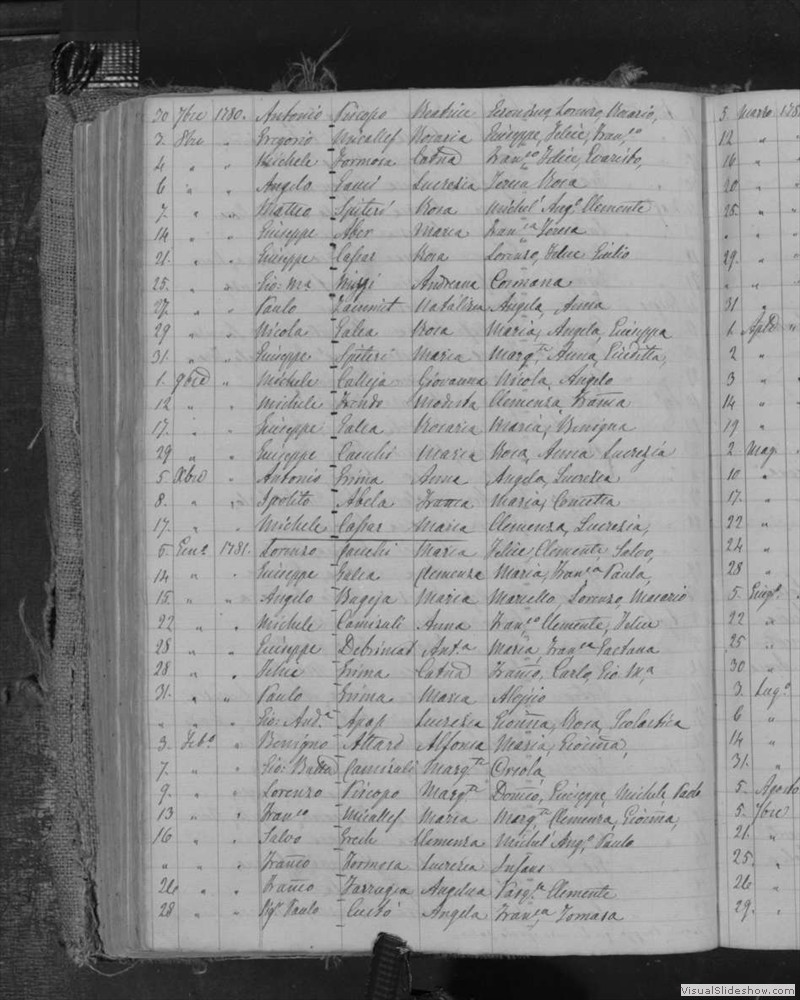 30 7bre 1780. Antonio Piscopo Beatrice Lorenzo, Rosario,
3. 8bre " Gregorio Micallef Rosaria Giuseppe, Felice, Fran.co
4 " " Michele Formosa Catna Fran.co Felice, Evaristo,
6 " " Angelo Lucrezia Teresa Rosa
7. " " Matteo Spiteri Rosa Michel' Ang.o Clemente
14 " " Giuseppe Aber Maria Fran.ca Teresa
21. " " Giuseppe Caspar Rosa Lorenzo, Felice Giulio
25. " " Gio: Ma Andreana Cosmana
27. " " Paulo Zammit Natalizia Angela, Anna
29 " " Nicola Galea Rosa Maria, Angela, Giuseppa
31. " " Giuseppe Spiteri Maria Marg.ta Anna, Giuditta,
1. 9bre " Michele Calleja Giovanna Nicola, Angelo
12 " " Michele Modesta Clemenza, Franca
17. " " Giuseppe Galea Rosaria Maria, Benigna
29 " " Giuseppe Maria Rosa, Anna Lucrezia
5 Xbre " Antonio Grima Anna Angela, Lucrezia
8. " " Ipolito Abela Franca Maria, Concetta
17. " " Michele Caspar Maria Clemenza, Lucrezia,
5. Genn.o 1781. Lorenzo Maria Felice, Clemente, Salvo,
14 " " Giuseppe Galea Clemenza Maria, Fran.ca Paula,
15. " " Angelo Bugeja Maria Marcello, Lorenzo Macario
22 " " Michele Camisuli Anna Fran.co Clemente, Felice
28 " " Giuseppe Debrincat Ant.a Maria, Fran.ca Gaetana
28 " " Felice Grima Catna Franco, Carlo, Gio. Ma
31. " " Paulo Grima Maria Alessio
" " " Gio: And.a Apap Lucrezia Gioanna, Rosa, Scolastica
3. Feb.o " Benigno Attard Alfonsa Maria, Gioanna,
7. " " Gio: Batta Camisuli Marg.ta Orsola,
9. " " Lorenzo Piscopo Marg.ta Domco, Giuseppe, Michele, Paolo
13 " " Fran.co Micallef Maria Marg.ta Clemenza, Gioanna,
16 " " Salvo Grech Clemenza Michel' Ang.o Paulo
" " " Franco Formosa Lucrezia Infans
26 " " Franco Farrugia Angelica Pasq.le Clemente
28 " " Paulo Custó Angela Fran.ca Tomasa
3. Marzo 178
12 " "
16 " "
20 " "
25. " "
" " "
29. " "
" " "
31 " "
1. Aple "
2 " "
3 " "
14 " "
19 " "
2 Mag.
10 "
17. "
22 "
24 "
28 "
5. Giug.o
22 "
25 "
30 "
3. Lug.o
6 "
14 "
31. "
5. Agosto
5. 7bre
21. "
25. "
26 "
29. "
VisualSlideshow.com